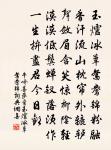 玉爐冰簟鴛鴦錦粉融
香汗流山枕簾外轆轤
聲斂眉含笑驚柳陰煙
漠漠低鬢蟬釵落須作
一生拚盡君今日歡
牛嶠菩薩蠻玉爐冰簟
鴛鴦錦